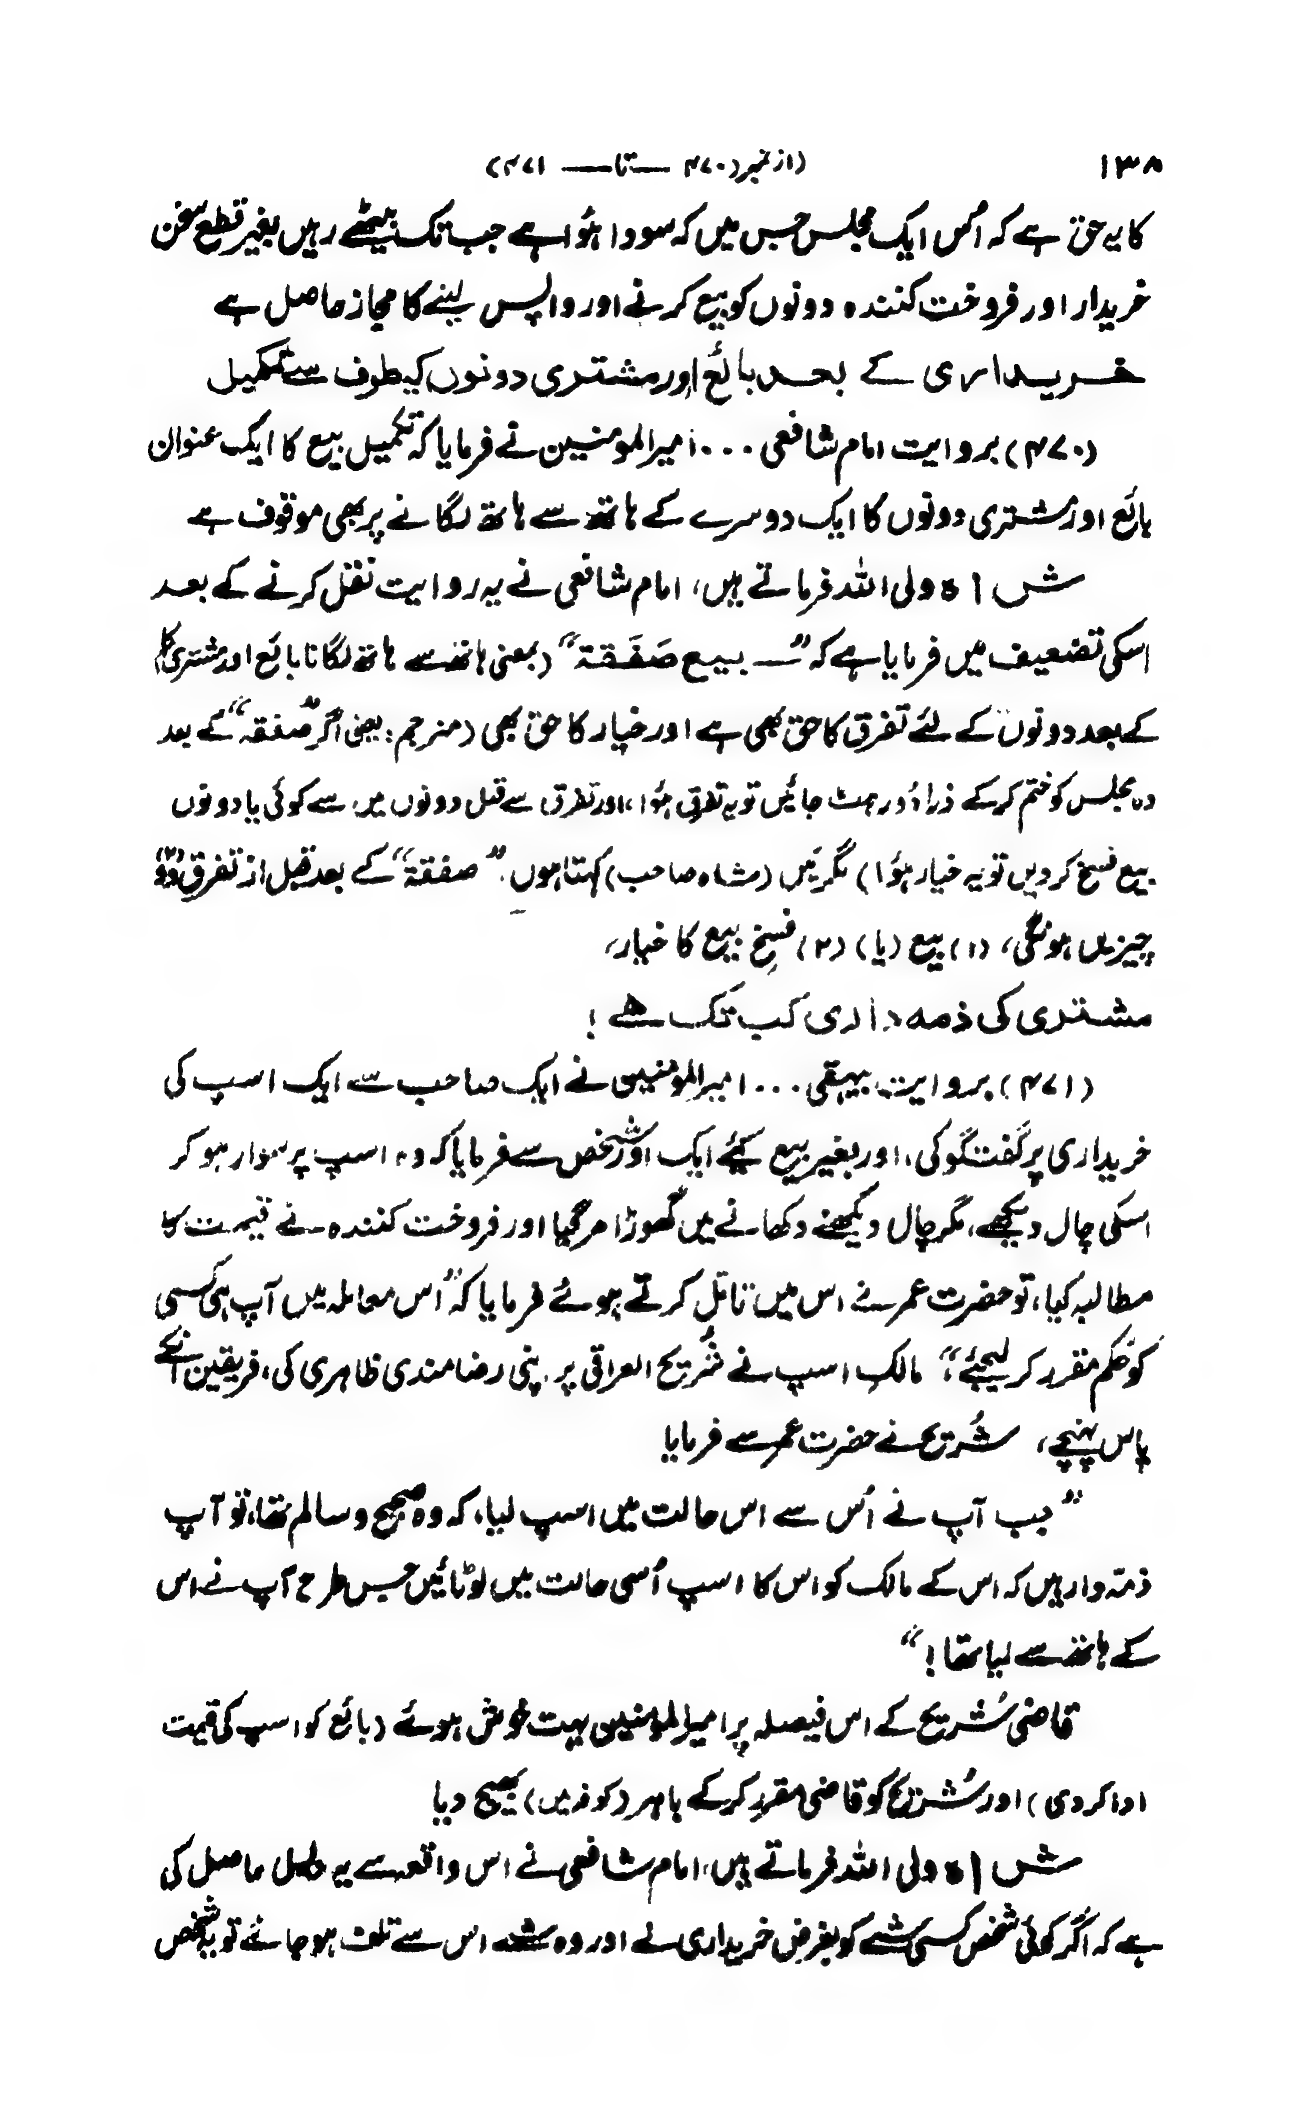 ۱۳۸ (از نمبر (۴۷۰ — تا — ۴۷۱)
کا یہ حق ہے کہ اُس ایک مجلس جس میں کہ سودا ہُوا ہے جب تک بیٹھے رہیں بغیر قطع سخن
خریدار اور فروخت کنندہ دونوں کو بیع کرنے اور واپس لینے کا مجاز حاصل ہے
خریداری کے بعد بائع اور مشتری دونوں کیطرف سے تکمیل
(۴۷۰) بروایت امام شافعی ... امیرالمومنین نے فرمایا کہ تکمیل بیع کا ایک عنوان
بائع اور مشتری دونوں کا ایک دوسرے کے ہاتھ سے ہاتھ لگانے پر بھی موقوف ہے
شاہ ولی اللہ فرماتے ہیں، امام شافعی نے یہ روایت نقل کرنے کے بعد
اسکی تضعیف میں فرمایا ہے کہ ”— بیع صَفَقۃ“ (بمعنی ہاتھ سے ہاتھ لگانا بائع اور مشتری کا)
کے بعد دونوں کے لئے تفرق کا حق بھی ہے اور خیار کا حق بھی (مترجم: یعنی اگر ”صفقہ“ کے بعد
وہ مجلس کو ختم کرکے ذرا دُور ہٹ جائیں تو یہ تفرق ہُوا، اور تفرق سے قبل دونوں میں سے کوئی یا دونوں
بیع فسخ کر دیں تو یہ خیار ہُوا) مگر مَیں (شاہ صاحب) کہتا ہوں۔ ”صفقۃ“ کے بعد قبل از تفرق دو (۲)
چیزیں ہونگی، (۱) بیع (یا) (۲) فسخِ بیع کا خیار،
مشتری کی ذمہ داری کب تک ہے!
(۴۷۱) بروایت بیہقی ... امیرالمومنین نے ایک صاحب سے ایک اسپ کی
خریداری پر گفتگو کی، اور بغیر بیع کئے ایک اور شخص سے فرمایا کہ وہ اسپ پر سوار ہو کر
اسکی چال دیکھے، مگر چال دیکھنے دکھانے میں گھوڑا مر گیا اور فروخت کنندہ نے قیمت کا
مطالبہ کیا، تو حضرت عمر نے اس میں تامّل کرتے ہوئے فرمایا کہ ”اُس معاملہ میں آپ ہی کسی
کو حَکم مقرر کر لیجئے،“ مالکِ اسپ نے شُریح العراقی پر اپنی رضامندی ظاہری کی، فریقین انکے
پاس پہنچے، شُریح نے حضرت عمر سے فرمایا
”جب آپ نے اُس سے اس حالت میں اسپ لیا، کہ وہ صحیح و سالم تھا، تو آپ
ذمّہ دار ہیں کہ اس کے مالک کو اس کا اسپ اُسی حالت میں لوٹائیں جس طرح آپ نے اس
کے ہاتھ سے لیا تھا!“
قاضی شُریح کے اس فیصلہ پر امیرالمومنین بہت خوش ہوئے (بائع کو اسپ کی قیمت
ادا کر دی) اور شُریح کو قاضی مقرر کرکے باہر (کوفہ میں) بھیج دیا
شاہ ولی اللہ فرماتے ہیں، امام شافعی نے اس واقعہ سے یہ دلیل حاصل کی
ہے کہ اگر کوئی شخص کسی شے کو بغرض خریداری لے اور وہ شے اس سے تلف ہو جائے تو یہ شخص